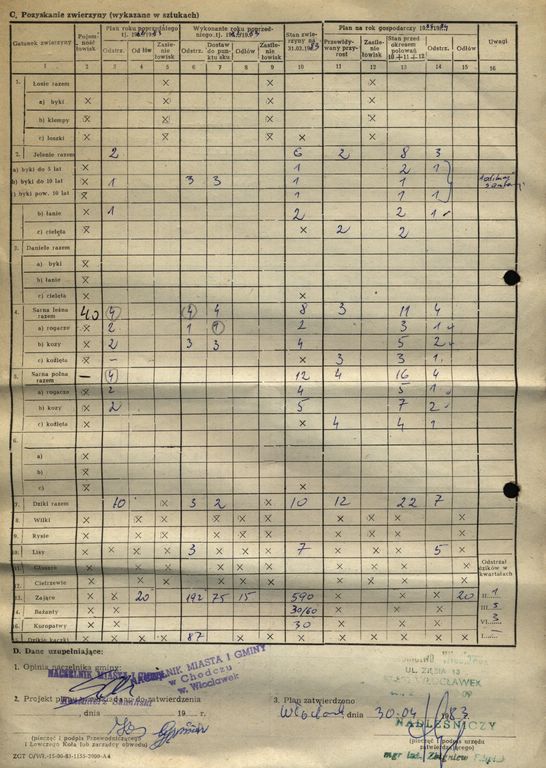 C. Pozyskanie zwierzyny (wykazane w sztukach)
Gatunek zwierzyny | Pojemność łowisk | Plan roku poprzedniego tj. | Wykonanie roku poprzedniego tj. | Stan zwierzyny na 31.03.1983 | Plan na rok gospodarczy | Uwagi
Odstrz. | Odłów | Zasilenie łowisk | Odstrz. | Dostaw do punktu sku | Odłów | Zasilenie łowisk | Przewidywany przyrost | Zasilenie łowisk | Stan przed okresem polowań 10+11+12 | Odstrz. | Odłów
1 | 2 | 3 | 4 | 5 | 6 | 7 | 8 | 9 | 10 | 11 | 12 | 13 | 14 | 15 | 16
1. Łosie razem × × ×
a) byki × × × ×
b) klempy × × × ×
c) łoszki × × × × ×
2. Jelenie razem 2 6 2 8 3
a) byki do 5 lat × 1 2 1
b) byki do 10 lat × 1 3 3 1 1
c) byki pow. 10 lat × 1 1 1
b) łanie × 1 2 2 1
c) cielęta × × 2 2
3. Daniele razem
a) byki ×
b) łanie ×
c) cielęta × ×
4. Sarna leśna razem 40 4 4 4 8 3 11 4
a) rogacze × 2 1 1 2 3 1
b) kozy × 2 3 3 4 5 2
c) koźlęta × – × 3 3 1
5. Sarna polna razem – 4 12 4 16 4
a) rogacze × 2 4 5 1
b) kozy × 2 5 7 2
c) koźlęta × × 4 4 1
6.
a) ×
b) ×
c) × ×
7. Dziki razem 10 3 2 × 10 12 22 7
8. Wilki × × × × × × × × ×
9. Rysie × × × × × × × × ×
10. Lisy × × × × 3 × × 7 × × × 5 ×
11. Głuszce × × × × × × × × ×
12. Cietrzewie × × × × × × × × ×
13. Zające × × 20 192 75 15 590 × × × × 20
4. Bażanty × × 30/60 × ×
16. Kuropatwy × × 30 × ×
15. Dzikie kaczki × × × × 87 × × × × × × × ×
Odstrzał dzików w kwartałach
II. 1
III. 5
VI. 3
I. –
D. Dane uzupełniające:
1. Opinia naczelnika gminy:
NACZELNIK MIASTA I GMINY
w Chodczu
w. Włocławek
UL. ZIĘBIA 13
WŁOCŁAWEK
2. Projekt planu do zatwierdzenia
, dnia 19 r.
3. Plan zatwierdzono
Włocławek, dnia 30.04 1983 r.
NADLEŚNICZY
(pieczęć i podpis Przewodniczącego i Łowczego Koła lub zarządcy obwodu)
(pieczęć i podpis urzędu zatwierdzającego)
mgr inż. Zbigniew
ZGT O/Wł.